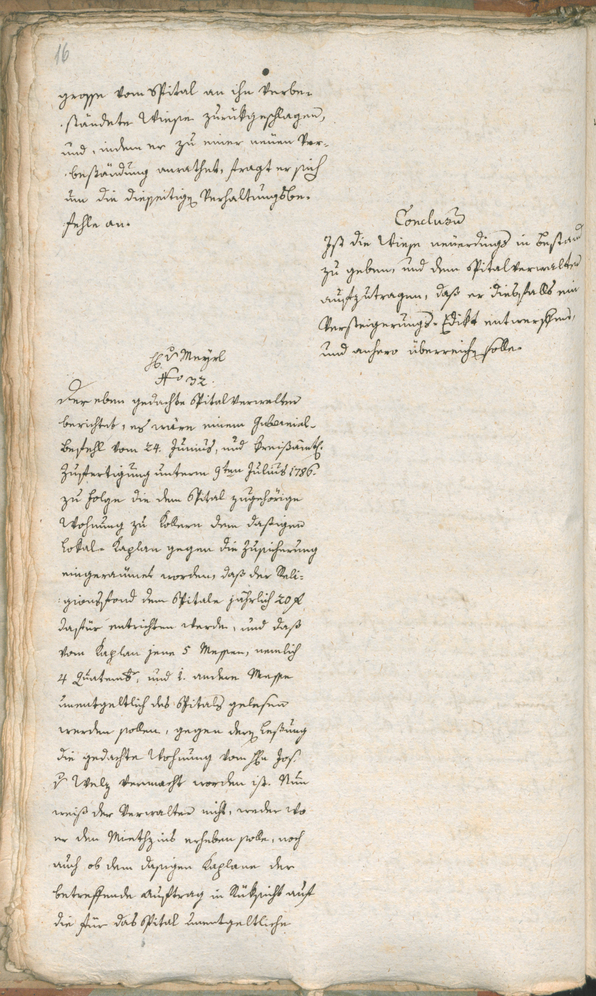 16
grosse vom Spital an ihn verbe-
ständete Wiese zurückgeschlagen,
und, indem er zu einer neuen Ver-
beständung anrathet, fragt er sich
um die diesseitigen Verhaltungsbe-
fehle an.
Conclusum
Ist die Wiese neuerdings in Bestand
zu geben, und dem Spitalverwalter
aufzutragen, daß er diesfalls ein
Versteigerungs-Edikt entwerfen,
und anhero überreichen solle.
H v Meyrl
No 32.
Der eben gedachte Spitalverwalter
berichtet, es wäre einem Gubernial-
befehl vom 24. Junius, und kreisämtl.
Zufertigung unterm 9ten Julius 1786.
zu Folge die dem Spital zugehörige
Wohnung zu Kollern dem dasigen
Lokal-Kaplan gegen die Zusicherung
eingeraumet worden, daß der Reli-
gionsfond dem Spitale jährlich 20 f
dafür entrichten werde, und daß
vom Kaplan jene 5 Messen, nemlich
4 Quatember, und 1. andere Messe
unentgeltlich des Spitals gelesen
werden sollen, gegen deren Lesung
die gedachte Wohnung vom Hn Jos.
v Welz vermacht worden ist. Nun
weiß der Verwalter nicht, weder wo
er den Miethzins erheben solle, noch
auch ob dem dasigen Kaplane der
betreffende Auftrag in Rüksicht auf
die für das Spital unentgeltliche